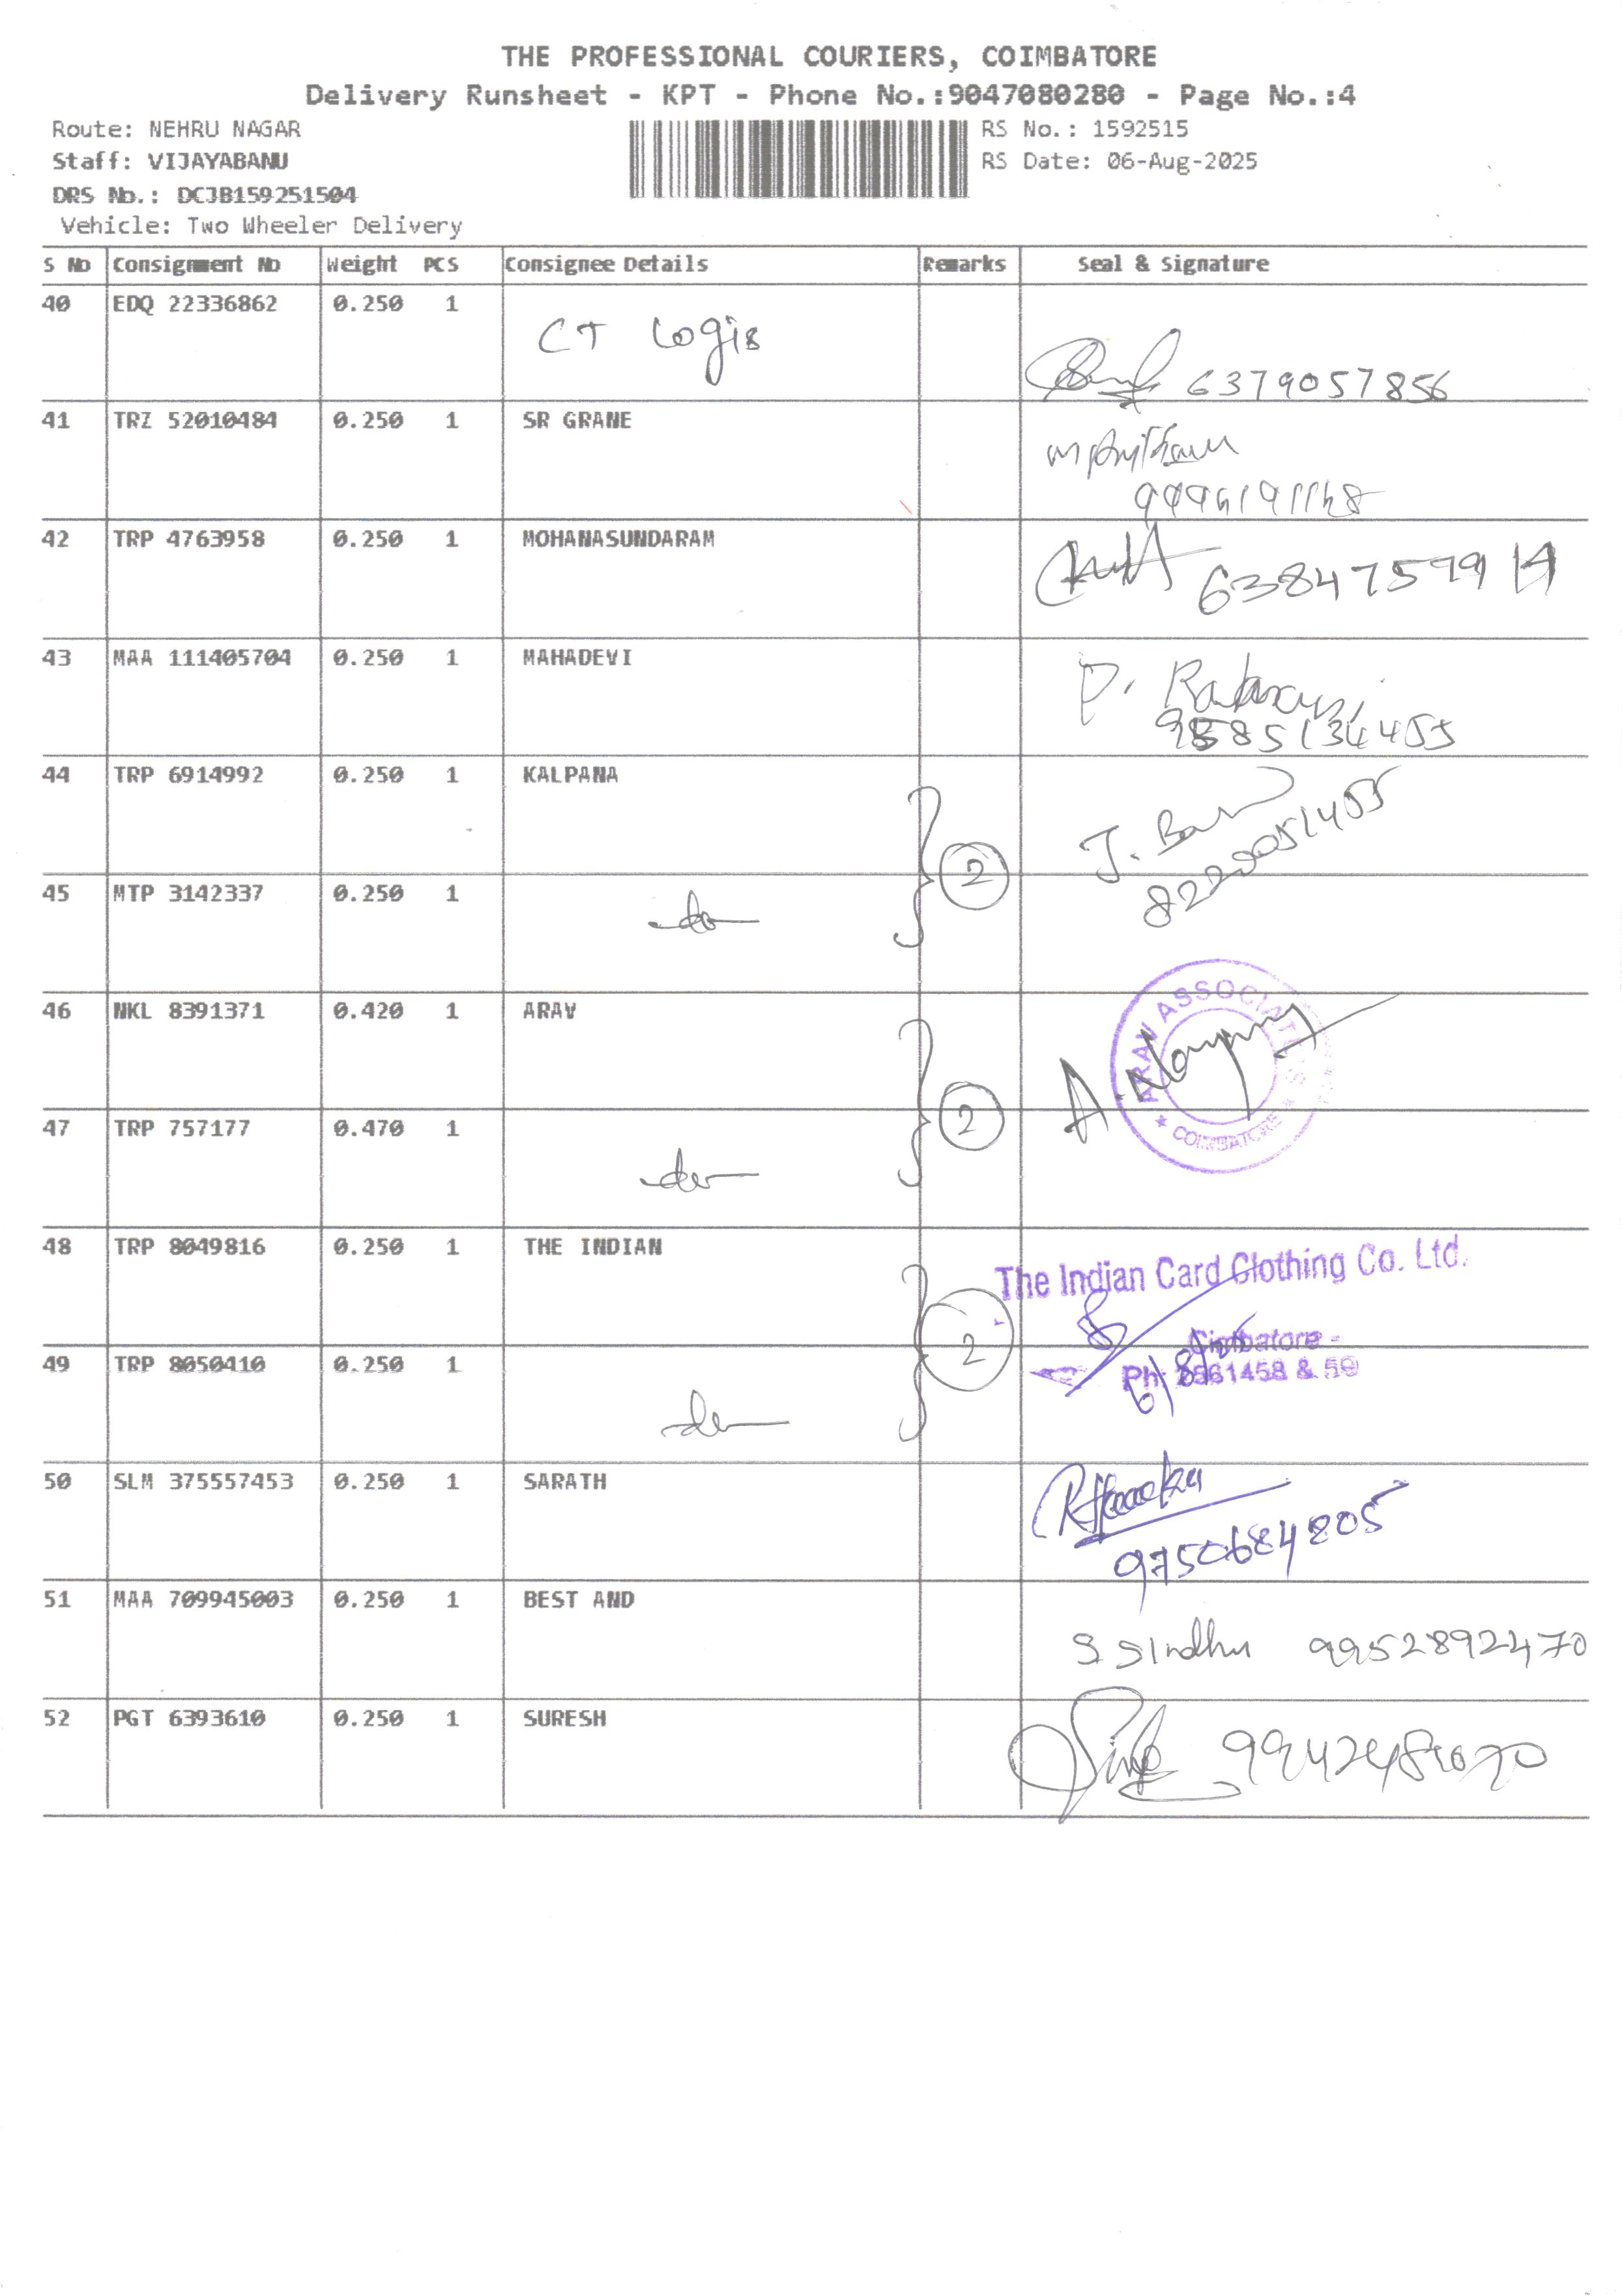 THE PROFESSIONAL COURIERS, COIMBATORE
Delivery Runsheet - KPT - Phone No.:9047080280 - Page No.:4
Route: NEHRU NAGAR
RS No.: 1592515
Staff: VIJAYABANU
RS Date: 06-Aug-2025
DRS No.: DCJB159251504
Vehicle: Two Wheeler Delivery
S No Consignment No Weight PCS Consignee Details Remarks Seal & Signature
40 EDQ 22336862 0.250 1 CT Logis
6379057856
41 TRZ 52010484 0.250 1 SR GRANE
42 TRP 4763958 0.250 1 MOHANASUNDARAM
43 MAA 111405704 0.250 1 MAHADEVI
44 TRP 6914992 0.250 1 KALPANA
2
45 MTP 3142337 0.250 1 do
46 NKL 8391371 0.420 1 ARAV
ARAV ASSOCIATES
COIMBATORE
2
47 TRP 757177 0.470 1 do
48 TRP 8049816 0.250 1 THE INDIAN
The Indian Card Clothing Co. Ltd.
2
49 TRP 8050410 0.250 1 do
50 SLM 375557453 0.250 1 SARATH
9750684805
51 MAA 709945003 0.250 1 BEST AND
S Sindhu 9952892470
52 PGT 6393610 0.250 1 SURESH